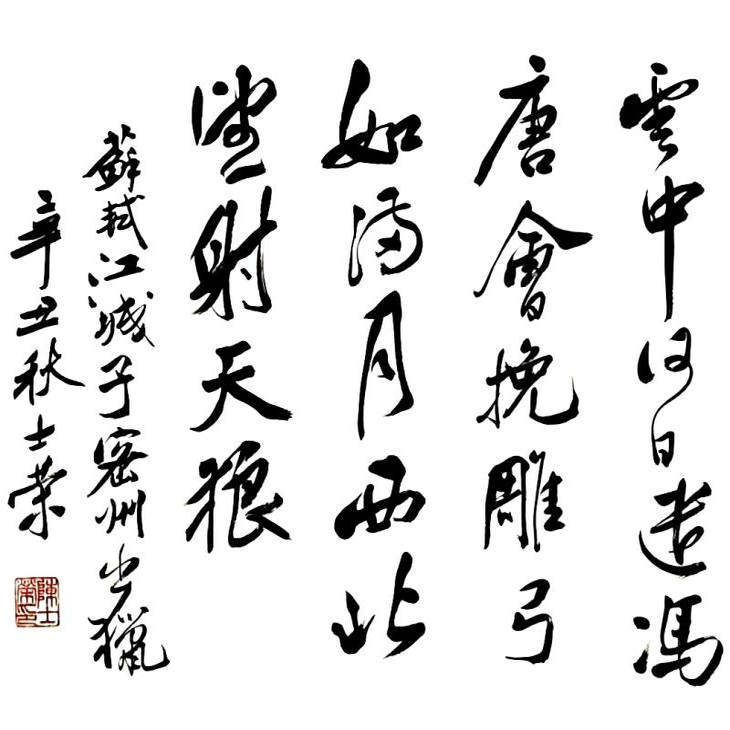 雲中何日遣馮
唐會挽雕弓
如滿月西北
望射天狼
蘇軾江城子密州出獵
辛丑秋士榮
陳士榮印